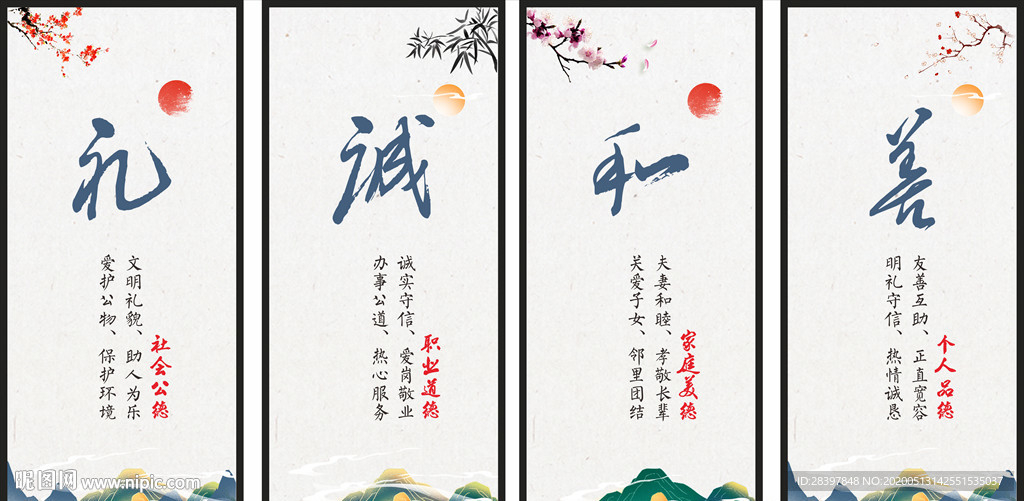 礼
社会公德
文明礼貌、助人为乐
爱护公物、保护环境
诚
职业道德
诚实守信、爱岗敬业
办事公道、热心服务
和
家庭美德
夫妻和睦、孝敬长辈
关爱子女、邻里团结
善
个人品德
友善互助、正直宽容
明礼守信、热情诚恳
昵图网 www.nipic.com
ID:28397848 NO:20200513142551535037